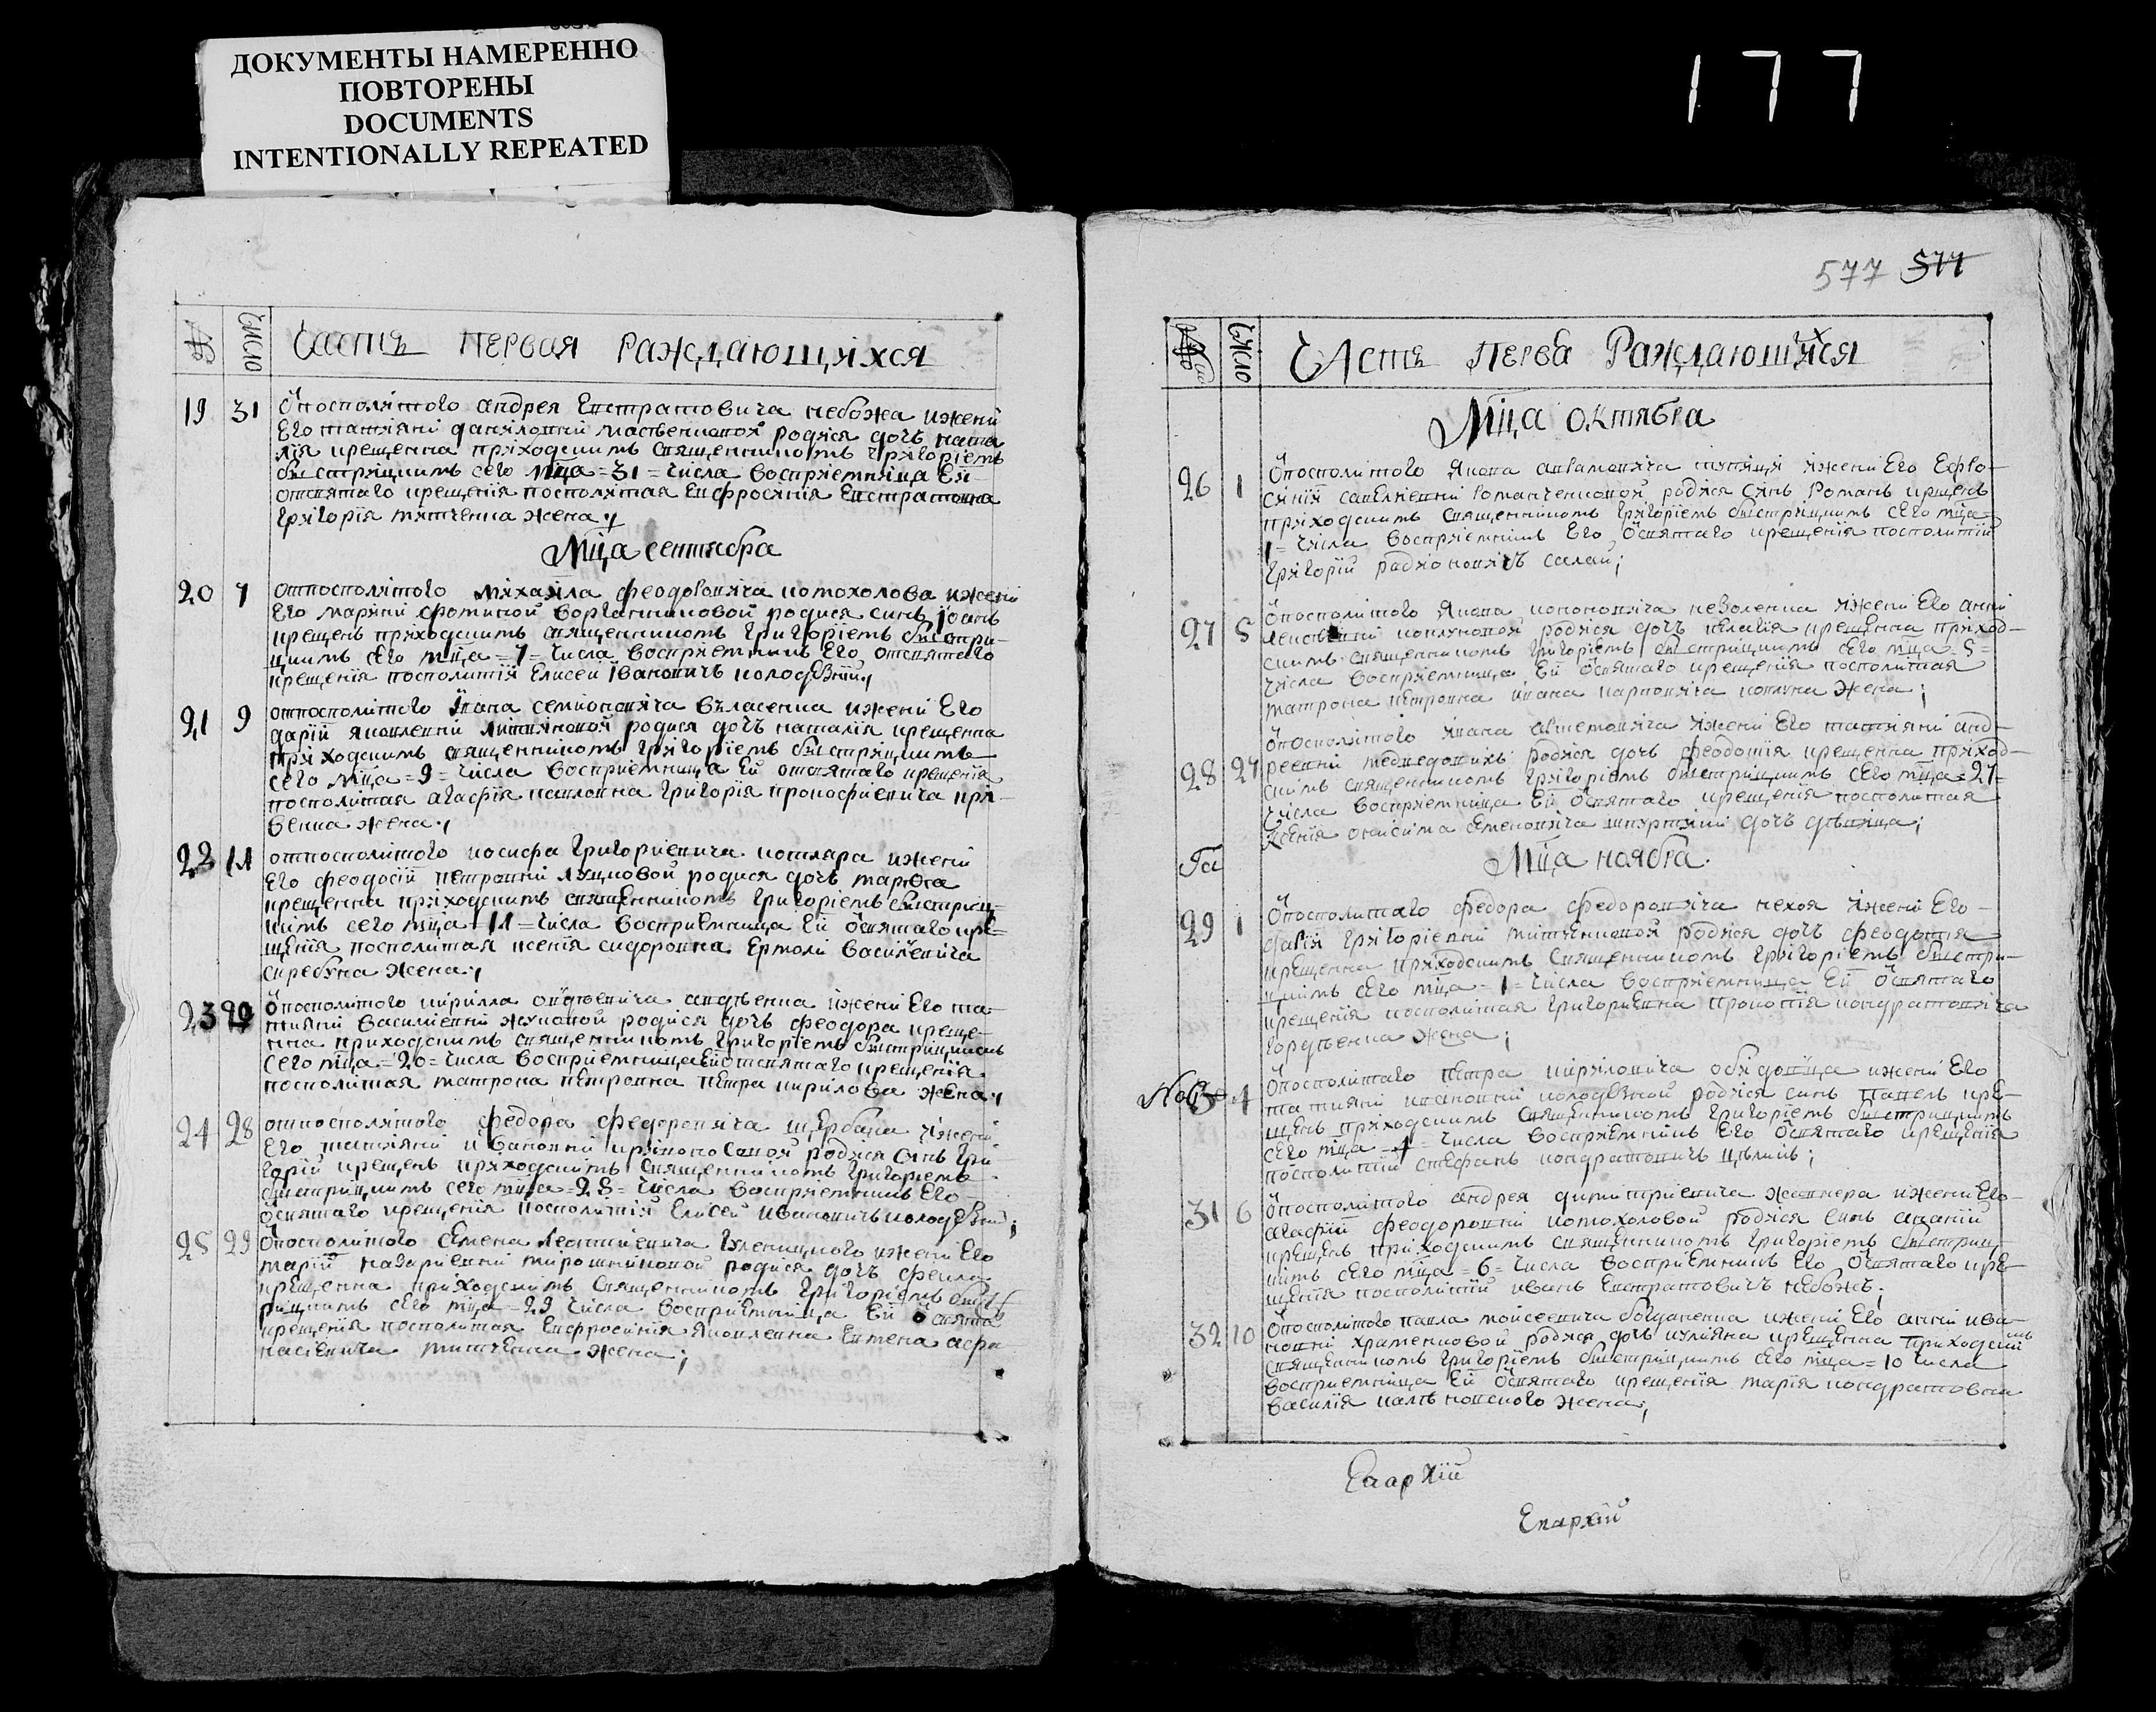 ДОКУМЕНТЫ НАМЕРЕННО
ПОВТОРЕНЫ
DOCUMENTS
INTENTIONALLY REPEATED
177
577 577
№ число Часть первая раждающихся
19 31 ѿ посполитого андрея евстратовича небожа и жени
его татияни данилов̾ни родися дочъ ната
лія крещенна приходскимъ священникомъ григоріемъ
быстрицкимъ сего мца = 31 = числа воспріемница ей
отсвятаго крещенія посполитая евфросинія евстратовна
григорія митченка жена;
Мца сентября
20 7 отпосполитого михаила феодоровича котохолова и жени
его марини фомичой родися синъ іоанъ
крещенъ приходскимъ священникомъ григоріемъ быстри-
цкимъ сего мца = 7 = числа воспріемникъ его отсвятаго
крещенія посполитій елисей івановичъ колодѣзній;
21 9 отпосполитого івана семионовича власенка и жени его
дарій яковлевни литвиновой родися дочъ наталія крещенна
приходскимъ священникомъ григоріемъ быстрицкимъ
сего мца = 9 = числа воспріемница ей отсвятаго крещенія
посполитая агафія павловна григорія прокофиевича кри-
венка жена;
22 11 отпосполитого иосифа григориевича котляра и жени
его феодосій петровни луцковой родися дочъ марфа
крещенна приходскимъ священникомъ григоріемъ быстриц-
кимъ сего мца = 11 = числа воспріемница ей ѿсвятаго кре-
щенія посполитая ксенія сидоровна ермоли василіевича
скребука жена;
23 20 ѿпосполитого кирилла авдѣевича авдѣенка и жени его та-
тияни василіевни жуковой родися дочъ феодора креще-
нна приходскимъ священникомъ григоріемъ быстрицкимъ
сего мца = 20 = числа воспріемница ей отсвятаго крещенія
посполитая матрона петровна петра кирилова жена;
24 28 отпосполитого федора федоровича щербака и жени
его татияни ивановни родися синъ гри
горій крещенъ приходскимъ священникомъ григоріемъ
быстрицкимъ сего мца = 28 = числа воспріемникъ его
ѿсвятаго крещенія посполитій елисей ивановичъ колодѣзній;
25 29 ѿпосполитого семена леонтиевича гуленицкого и жени его
марій назариевни мирошниковой родися дочъ фекла
крещенна приходскимъ священникомъ григоріемъ быст
рицкимъ сего мца = 29 числа воспріемница ей ѿсвята
крещенія посполитая евфросинія яковлевна евтена афа
насіевича митченка жена;
№ число Часть перва Раждающихся
Мца октября
26 1 ѿпосполитого якова артамовича и жени его евфро-
синій савелиевни романченковой родися синъ романъ крщенъ
приходскимъ священникомъ григоріемъ быстрицкимъ сего мца =
1 = числа воспріемникъ его ѿсвятаго крещенія посполитій
григорій радионовичъ салай;
27 5 ѿпосполитого якова кононовича неволенка и жени его анни
родися дочъ пелагія крещенна приход-
скимъ священникомъ григоріемъ быстрицкимъ сего мца = 5 =
числа воспріемница ей ѿсвятаго крещенія посполитая
матрона петровна ивана карповича ковтуна жена;
28 27 ѿпосполитого ивана артемовича и жени его татияни анд-
реевни медведовихъ родися дочъ феодотія крещенна приход-
скимъ священникомъ григоріемъ быстрицкимъ сего мца = 27 =
числа воспріемница ей ѿсвятаго крещенія посполитая
ксенія онисима семеновича дочъ дѣвица;
Мца ноября
29 1 ѿпосполитаго федора федоровича нехоя и жени его
дарій григоріевни митченковой родися дочъ феодотія
крещенна приходскимъ священникомъ григоріемъ быстри-
цкимъ сего мца = 1 = числа воспріемница ей ѿсвятаго
крещенія посполитая григориевна прокопія кондратовича
гордѣенка жена;
30 4 ѿпосполитаго петра кириловича и жени его
татияни ивановни колодѣзной родися синъ павелъ кре-
щенъ приходскимъ священникомъ григоріемъ быстрицкимъ
сего мца = 4 = числа воспріемникъ его ѿсвятаго крещенія
посполитій стефанъ кондратовичъ
31 6 ѿпосполитого андрея димитриевича и жени его
агафій феодоровни котохоловой родися синъ ананій
крещенъ приходскимъ священникомъ григоріемъ быстриц-
кимъ сего мца = 6 = числа воспріемникъ его ѿсвятаго кре-
щенія посполитій иванъ евстратовичъ небожъ;
32 10 ѿпосполитого павла мойсеевича богданенка и жени его анни ива-
новни храменковой родися дочъ иулияна крещенна приходскимъ
священникомъ григоріемъ быстрицкимъ сего мца = 10 числа
воспріемница ей ѿсвятаго крещенія марія кондратовна
василія жена;
Епархій
Епархій